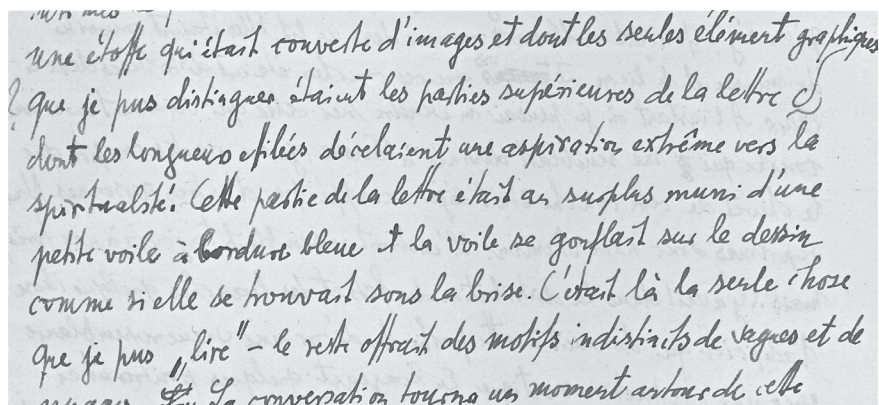 une étoffe qui était couverte d'images et dont les seules élément graphiques
? que je pus distinguer étaient les parties supérieures de la lettre d
dont les longueurs efilées décelaient une aspiration extrême vers la
spirtualité. Cette partie de la lettre était au surplus muni d'une
petite voile à bordure bleue et la voile se gonflait sur le dessin
comme si elle se trouvait sous la brise. C'était là la seule chose
que je pus „lire" – le reste offrait des motifs indistincts de vagues et de
La conversation tourna un moment autour de cette